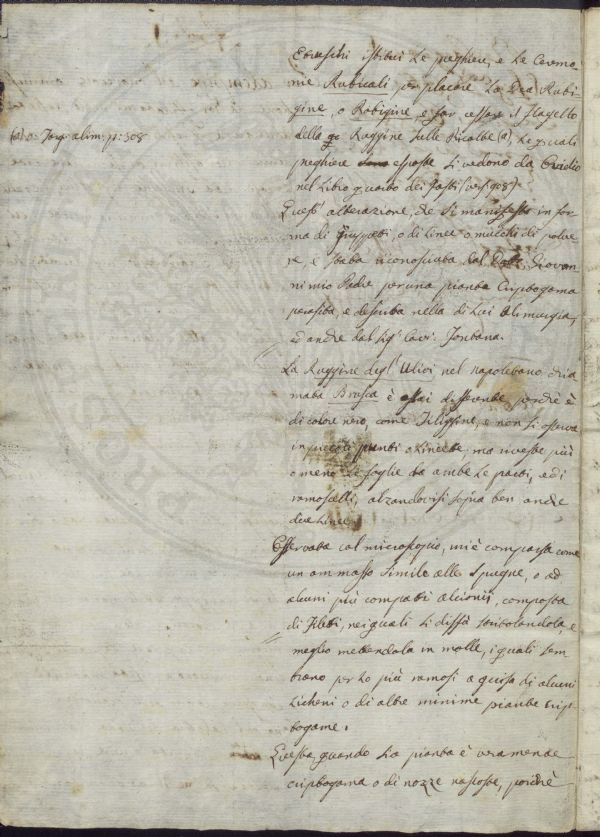 Etruschi istituì le preghiere, e le Cerimo-
nie Rubicali per placare la Dea Rubi-
gine, o Robigine, e far cessare il flagello
della Ruggine sulle Ricolte (a), le quali
(a) v. Targ. alim. p: 308
preghiere esposte si vedono da Ovidio
nel Libro quarto dei fasti (vers. 908).
Quest'alterazione, che si manifesta in for-
ma di gruppetti, o di linee o mucchi di polve-
re, è stata riconosciuta dal Dott. Giovan-
ni mio Padre per una pianta criptogama
parasita, e descritta nella di Lui Alimurgia,
ed anche dal Sig. Cav. Fontana.
La Ruggine degl'Ulivi nel napoletano chia-
mata Brusca è assai differente, perchè è
di colore nero, come Filiggine, e non si osserva
in piccoli punti o lineette, ma investe più
o meno le foglie da ambe le parti, ed i
ramoscelli, alzandovisi sopra ben anche
due linee.
Osservata col microscopio, mi è comparsa come
un ammasso simile alle Spugne, o ad
alcuni più compatti alcionii, composta
di Filetti, nei quali si disfà, e
meglio mettendola in molle, i quali sem-
brano per lo più ramosi a guisa di alcuni
Licheni o di altre minime piante crip-
togame.
Questa, quando sia pianta è veramente
criptogama o di nozze nascoste, poichè